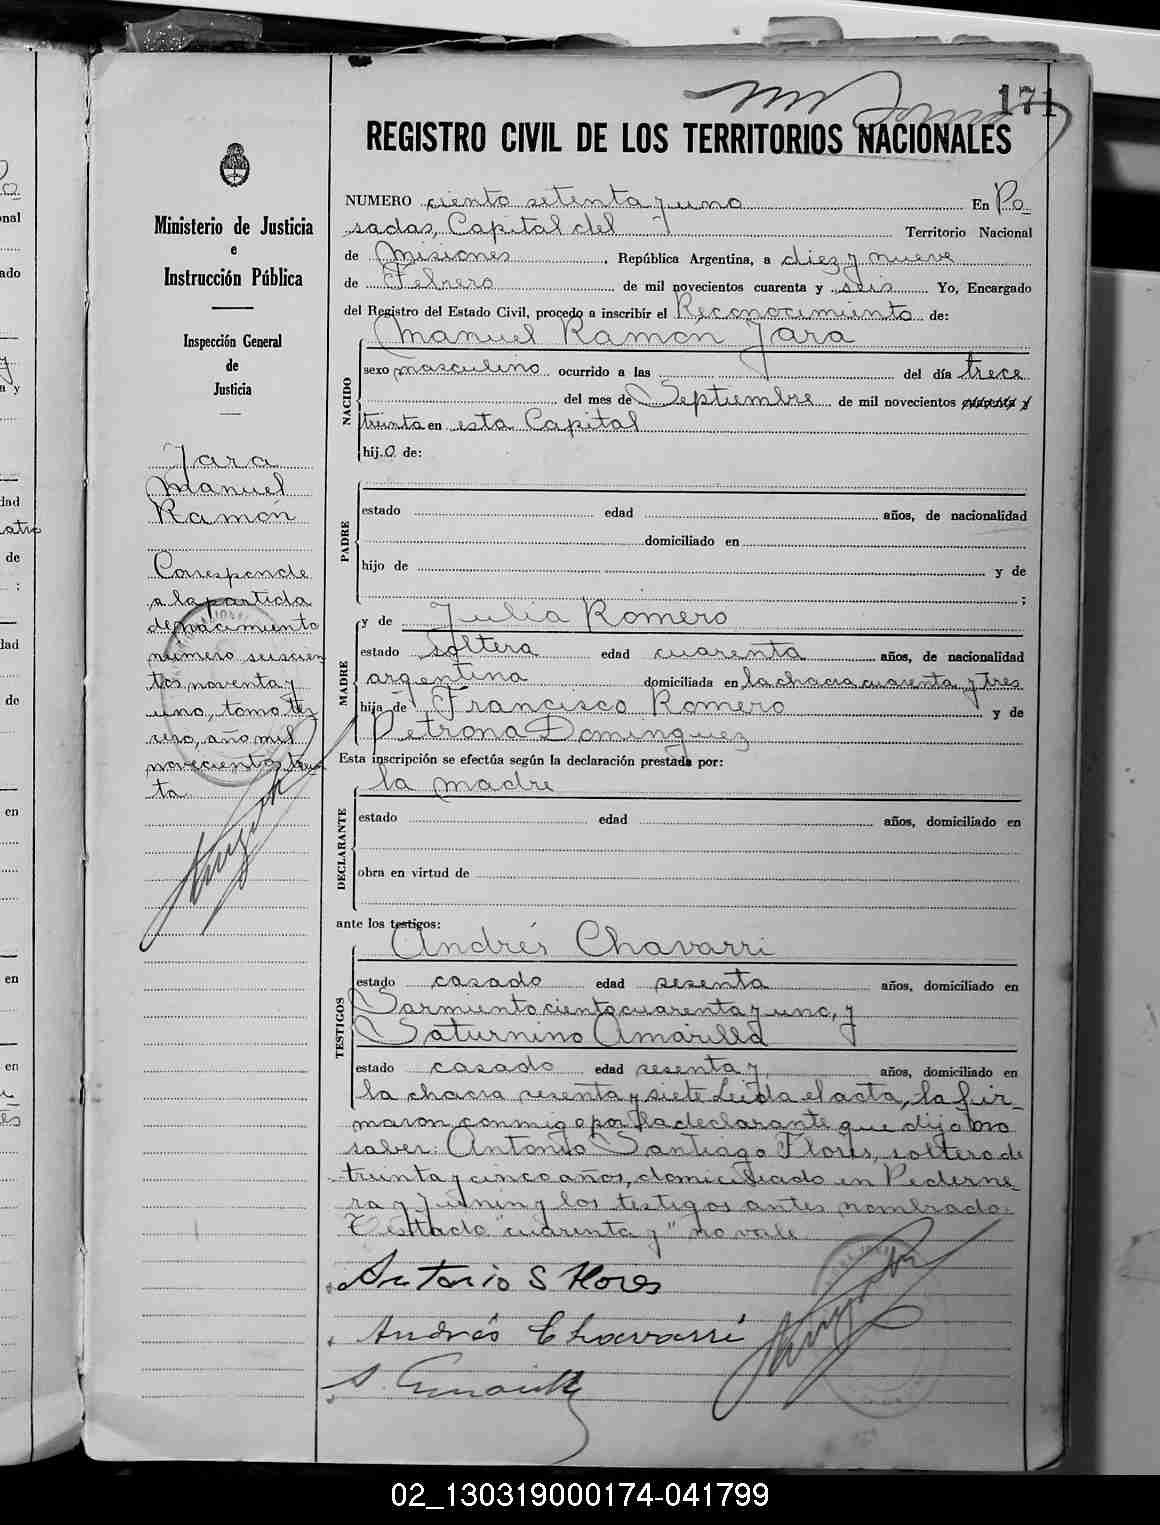 171
REGISTRO CIVIL DE LOS TERRITORIOS NACIONALES
Ministerio de Justicia
e
Instrucción Pública
Inspección General
de
Justicia
Jara
Manuel
Ramon
Corresponde
a la partida
de nacimiento
número seiscien
tos noventa y
uno, tomo ter
cero, año mil
novecientos trein
ta
NUMERO ciento setenta y uno En Po-
sadas, Capital del Territorio Nacional
de Misiones, República Argentina, a diez y nueve
de Febrero de mil novecientos cuarenta y seis Yo, Encargado
del Registro del Estado Civil, procedo a inscribir el Reconocimiento de:
Manuel Ramon Jara
NACIDO
sexo masculino ocurrido a las del día trece
del mes de Septiembre de mil novecientos cuarenta y
treinta en esta Capital
hijo de:
PADRE
estado edad años, de nacionalidad
domiciliado en
hijo de y de
;
MADRE
y de Julia Romero
estado soltera edad cuarenta años, de nacionalidad
argentina domiciliada en la chacra cuarenta y tres
hija de Francisco Romero y de
Petrona Dominguez
Esta inscripción se efectúa según la declaración prestada por:
la madre
DECLARANTE
estado edad años, domiciliado en
obra en virtud de
ante los testigos:
Andrés Chavarri
TESTIGOS
estado casado edad sesenta años, domiciliado en
Sarmiento ciento cuarenta y uno, y
Saturnino Amarilla
estado casado edad sesenta y años, domiciliado en
la chacra sesenta y siete Leida el acta, la fir-
maron conmigo por la declarante que dijo no
saber: Antonio Santiago Flores, soltero de
treinta y cinco años, domiciliado en Pederne-
ra y Junin y los testigos antes nombrado.
Testado "cuarenta y" no vale
Antonio S Flores
Andrés Chavarri
S. Amarilla
02_130319000174-041799